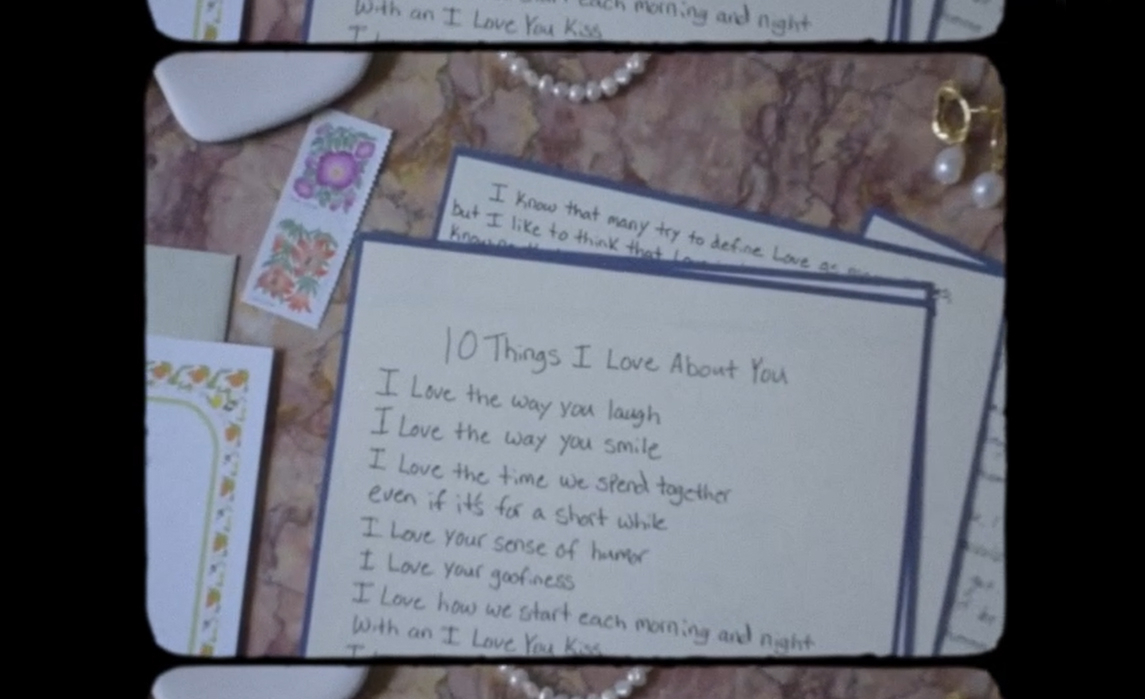 each morning and night
With an I Love You Kiss
I know that many try to define Love as
but I like to think that
10 Things I Love About You
I Love the way you laugh
I Love the way you smile
I Love the time we spend together
even if it's for a short while
I Love your sense of humor
I Love your goofiness
I Love how we start each morning and night
With an I Love You Kiss